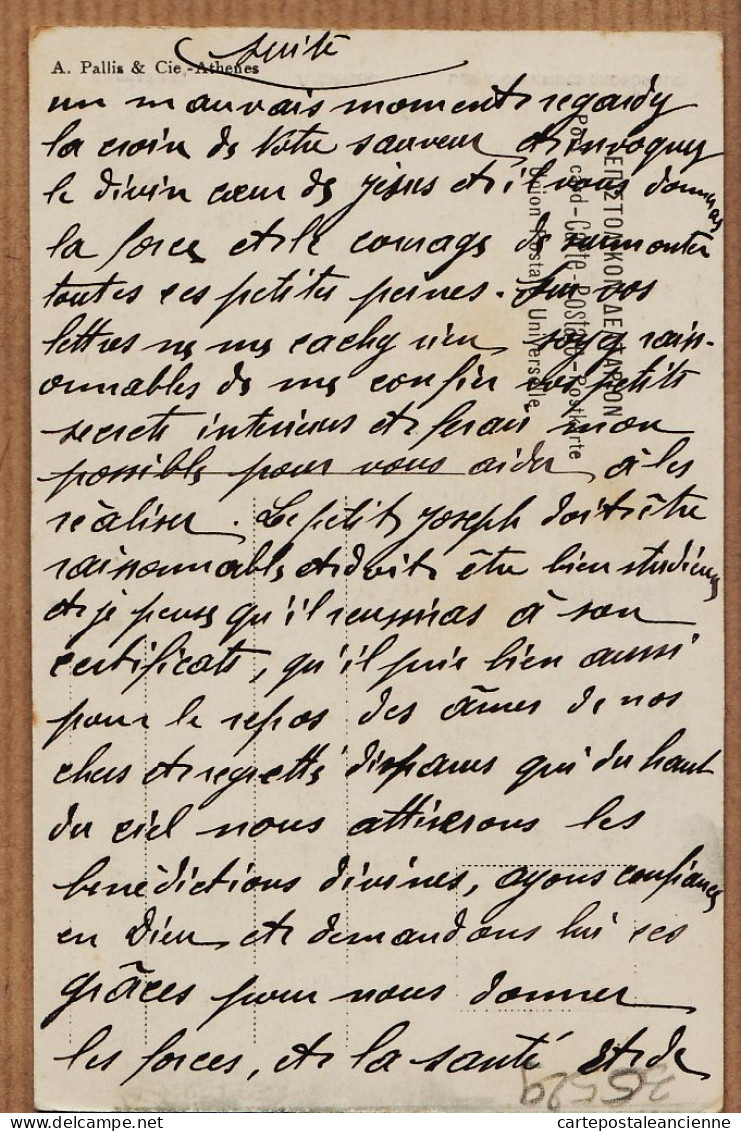 suite
A. Pallis & Cie - Athènes
un mauvais moment regardez
la croix de Notre sauveur et invoquez
le divin cœur de Jésus et il vous donneras
la force et le courage de surmonter
toutes ces petites peines. Sur vos
lettres ne me cachez rien soyez rais-
onnables de me confier vos petits
secrets interieurs et ferais mon
possible pour vous aider à les
réaliser. Le petit Joseph doit être
raisonnable et doit être bien studieux
et je pense qu'il reussiras à son
certificat, qu'il prie bien aussi
pour le repos des âmes de nos
chers et regrettés disparus qui du haut
du ciel nous attirerons les
benédictions divines, ayons confiance
en Dieu et demandons lui ses
grâces pour nous donner
les forces, et la santé et de
ΕΠΙΣΤΟΛΙΚΟΝ ΔΕΛΤΑΡΙΟΝ
Post card - Carte-Postale - Postkarte
Union Postale Universelle
cartepostaleancienne